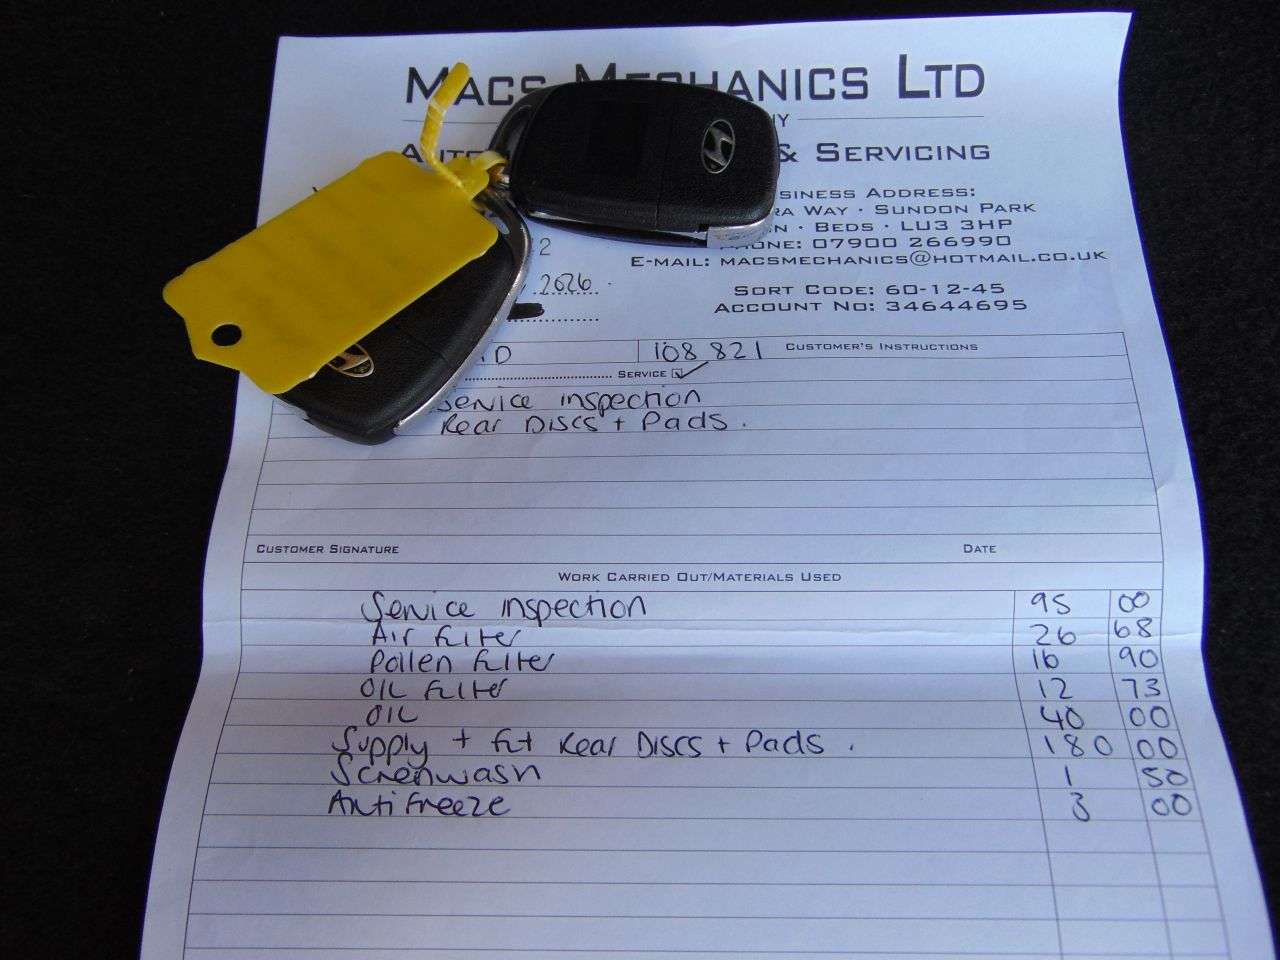 MACS MECHANICS LTD
& SERVICING
ADDRESS:
WAY · SUNDON PARK
· BEDS · LU3 3HP
PHONE: 07900 266990
2
E-MAIL: MACSMECHANICS@HOTMAIL.CO.UK
2026
SORT CODE: 60-12-45
ACCOUNT NO: 34644695
D 108 821 CUSTOMER'S INSTRUCTIONS
SERVICE
Service inspection
Rear Discs + Pads.
CUSTOMER SIGNATURE DATE
WORK CARRIED OUT/MATERIALS USED
Service inspection 95 00
Air filter 26 68
Pollen filter 16 90
Oil filter 12 73
Oil 40 00
Supply + fit Rear Discs + Pads. 180 00
Screnwash 1 50
Antifreeze 3 00